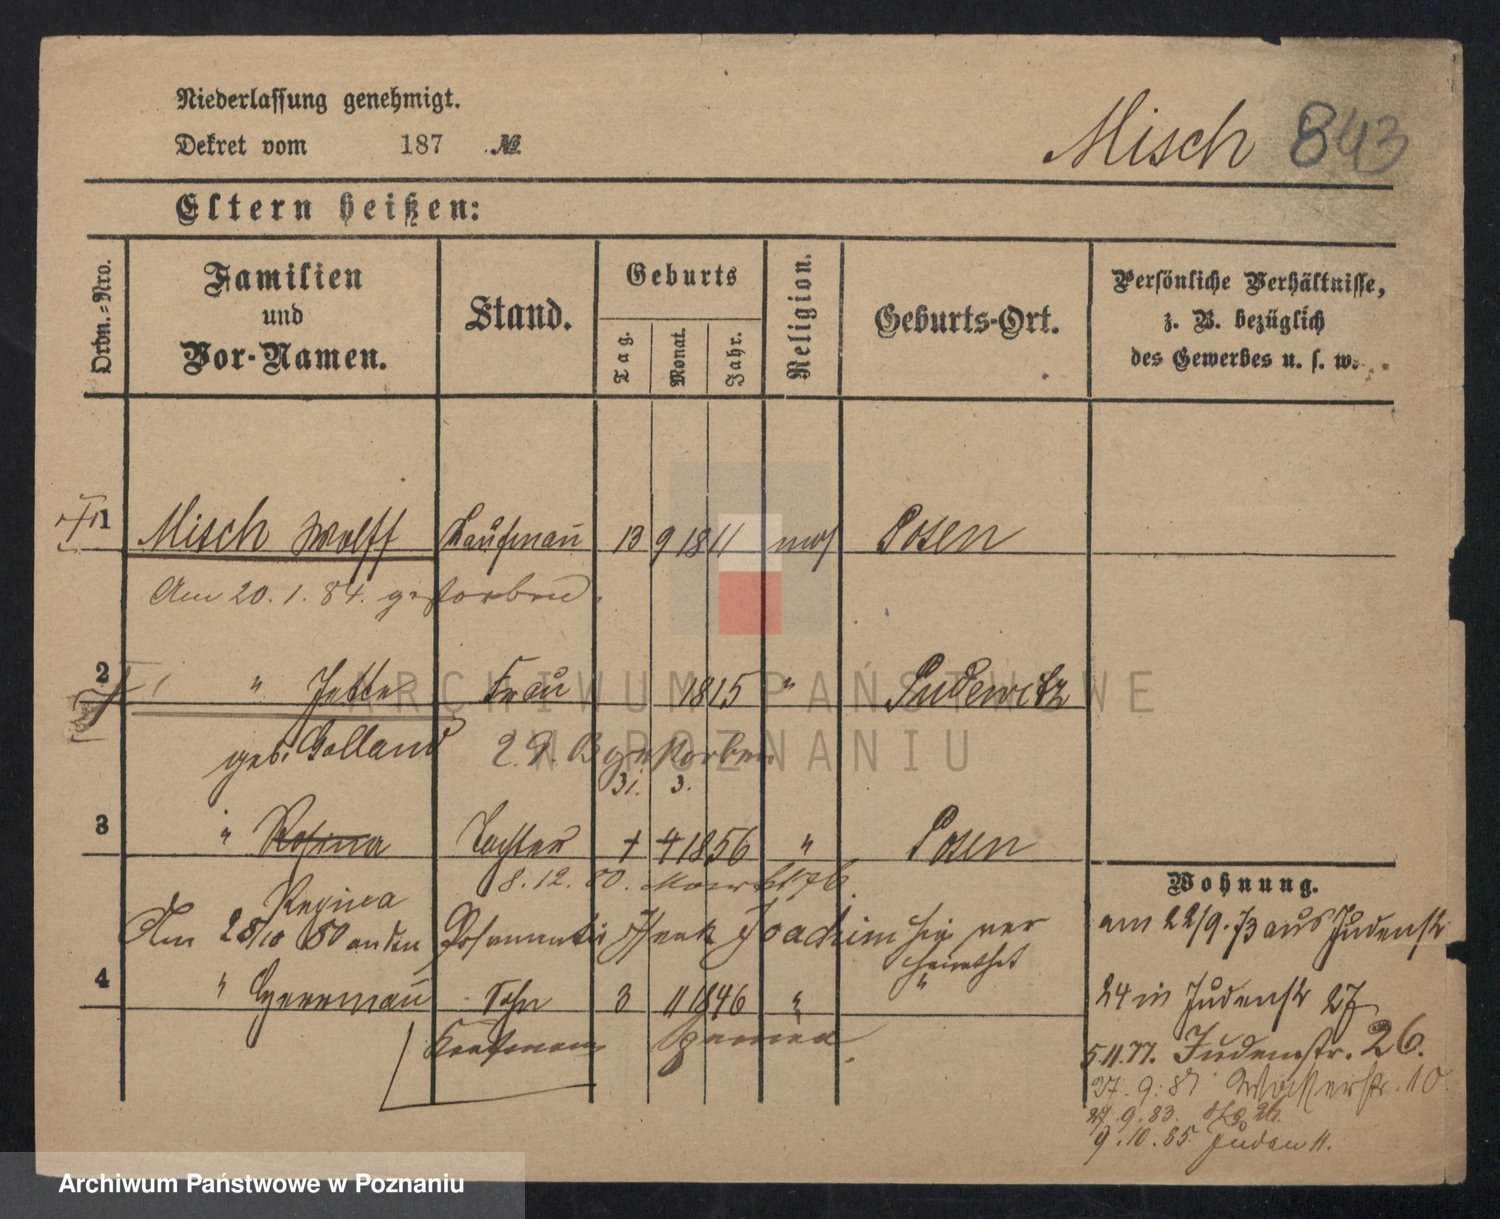 Niederlassung genehmigt.
Dekret vom 187 №
Misch 843
Eltern heißen:
Ordn.-Nro.
Familien und Vor-Namen.
Stand.
Geburts
Tag. Monat. Jahr.
Religion.
Geburts-Ort.
Persönliche Verhältnisse,
z. B. bezüglich
des Gewerbes u. s. w.
1 Misch Wolff Kaufmañ 13 9 1811 mos Posen
Am 20.1.84. gestorben.
2 " Jette Frau 1815 " Pudewitz
geb. Golland 2.9. gestorben
31. 3.
3 " Rosina Tochter 4 1856 " Posen
8.12.80.
Regina
Wohnung.
Am 28/10 80 an den Joachim hier ver
heirathet
am 22/9.73 aus Judenstr
4 " Herrmañ Sohn 3 11 1846 "
24 in Judenstr 27
Kaufmann
5.11.77. Judenstr. 26.
27.9.81 10
27.9.83.
9.10.85. Juden 11.
ARCHIWUM PAŃSTWOWE
W POZNANIU
Archiwum Państwowe w Poznaniu